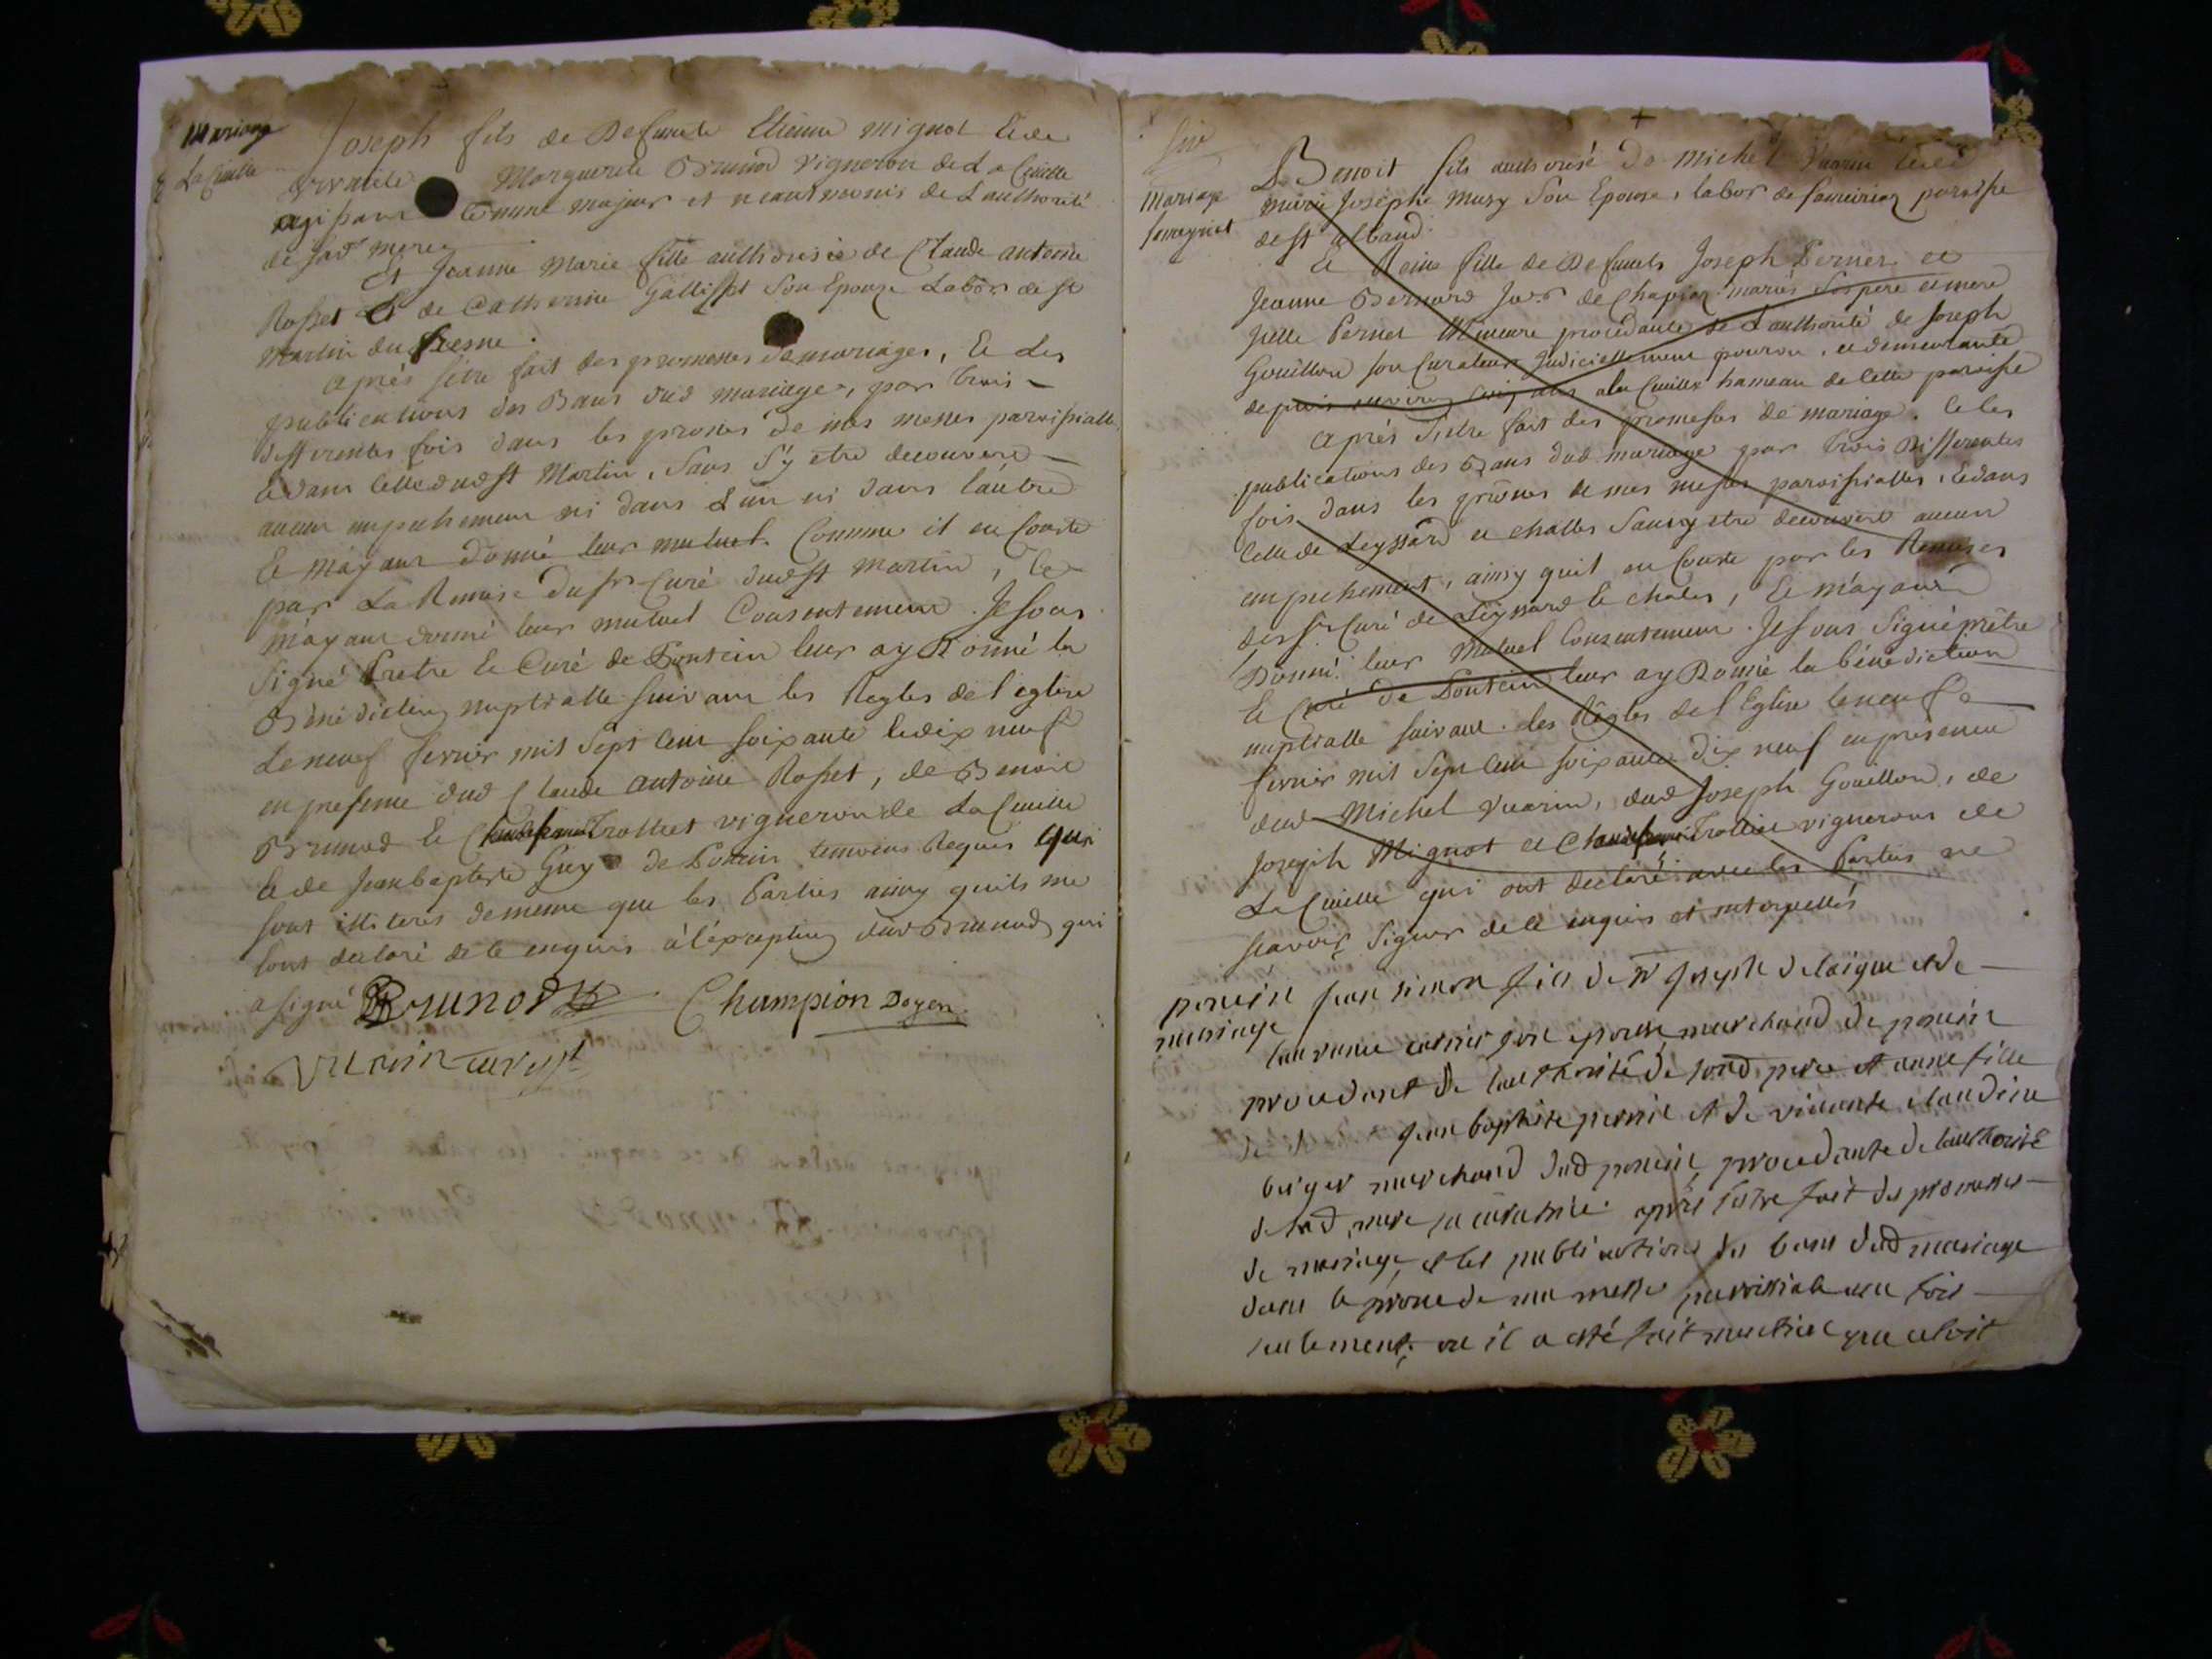 Mariage
La Cuille
Joseph fils de Defunte Etienne mignot Et de
vivante Marguerite Brunod vigneron de La Cuille
agissant Comme majeur et neantmoins de L'authorité
de sad mere
Et Jeanne Marie fille authorisée de Claude antoine
Rosset Et de Catherine Gallisset Son Epouse Labor de St
Martin du fresne.
après sêtre fait des promesses de mariages, Et les
publications des Bans dud mariage, par trois
differentes fois dans les prones de mes messes paroissialle
Et dans Celle dudst Martin, Sans s'y etre decouvert
aucun empechement ni dans L'un ni dans l'autre
Et m'ayant donné leur mutuel. Comme il en Conste
par La Remise du sr Curé dudst Martin, Et
m'ayant donné leur mutuel Consentement. Je sous
signé Pretre Et Curé de Poncin leur ay Donné la
Bénédiction nuptialle suivant les Regles de l'eglise
Le neuf fevrier mil Sept Cent soixante et dix neuf
en presence dud Claude antoine Rosset, de Benoit
Brunod Et Trolliet vigneron de La Cuille
Et de Jean baptiste Guy de Poncin temoins Requis qui
sont illiteres de meme que les Parties ainsy quils me
l'ont declaré de ce enquis à l'exception dud Brunod qui
a signé Brunod Champion Doyen
Vuarin
Mariage
Benoit fils authorisé de Michel Vuarin Et de
marie Josephe Musy Son Epouse, labor de paroisse
de st alband.
Et Reine fille de Defunts Joseph Pernet et
Jeanne Bernard de mariés Ses pere et mere
Pernet Mineure procedante de L'authorité de Joseph
Gouillon son Curateur Judiciellement pourvu, et demeurante
depuis environ ans a la Cuille hameau de Cette paroisse
après S'etre fait des promesses de mariage. Et les
publications des Bans dud mariage par trois Differentes
fois dans les prônes de mes messes paroissialles, Et dans
Celle de Leyssard et challes Sans y etre decouvert aucun
empechement, ainsy quil en Conste par les Remises
des srs Curé de Leyssard Et chales, Et m'ayant
Donné leur Mutuel Consentement. Je sous Signé prêtre
Et Curé de Poncin leur ay Donné la bénédiction
nuptialle suivant les Règles de l'Eglise le neuf
fevrier mil Sept Cent soixante Dix neuf en presence
dud Michel Vuarin, dud Joseph Gouillon, de
Joseph Mignot et Trolliet vignerons de
La Cuille qui ont declaré avec les Parties ne
scavoir Signer de Ce enquis et interpellés
poncin
mariage
jean simon fils de joseph delaigue et de
laurence son epouse, marchand de poncin
procedant de l'authorité de sond pere et anne fille
de jean baptiste pernie et de vivante claudine
berger marchand dud poncin, procedante de l'authorité
de sad mere sa curatrice. après s'estre fait des promesses
de mariage, et les publications des bans dud mariage
dans le prone de ma messe parroissiale une fois
seulement, ou il a esté fait mention que cetoit